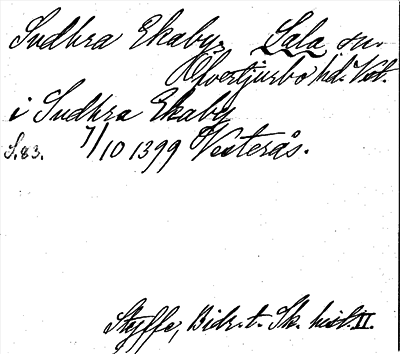 Sudhra Ekaby, Sala sn.
Öfvertjurbo hd. Vstl.
i Sudhra Ekaby
S. 83. 7/10 1399 Vesterås.
Styffe, Bidr. t. Sk. hist. II.